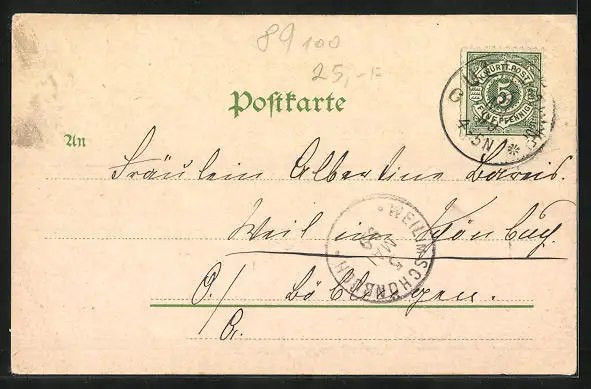 89100
25,-
Postkarte
K. WÜRTT. POST
5
FÜNF PFENNIG
4-5N
An
Fräulein Albertine Bareis.
Weil im Schönbuch
WEIL IM SCHÖNBUCH
O./ Böblingen.
A.